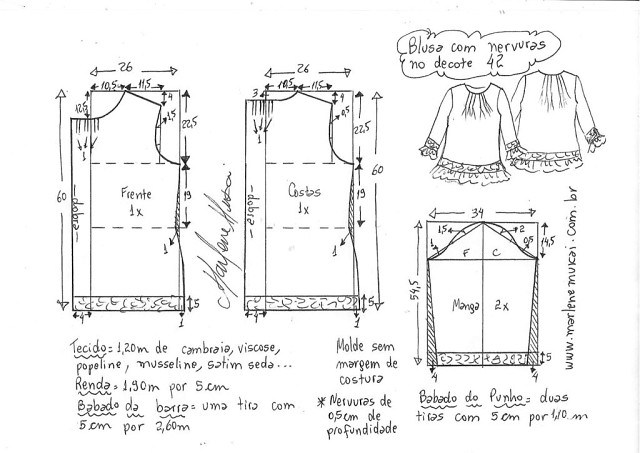 Blusa com nervuras
no decote 42
26
10,5
11,5
12,5
4
1,5
22,5
1
60
Frente
1x
dobra
19
1
5
4
1
26
3
10,5
11,5
4
0,5
22,5
1
60
Costas
1x
dobra
19
1
5
4
1
Marlene Mukai
34
1,5
2
1
0,5
14,5
F
C
54,5
Manga
2x
5
4
4
www.marlenemukai.com.br
Tecido = 1,20m de cambraia, viscose,
popeline, musseline, satim seda...
Renda = 1,90m por 5cm
Babado da barra = uma tira com
5cm por 2,60m
Molde sem
margem de
costura
* Nervuras de
0,5cm de
profundidade
Babado do Punho = duas
tiras com 5cm por 1,10m